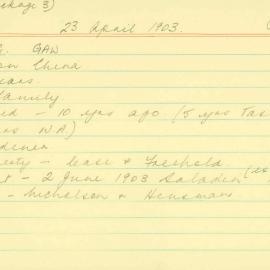 ckage 3)
23 April 1903.
G. GAW
on China
ears.
Family.
ed - 10 yrs ago (5 yrs Tas
rs W.A)
rdener
erty - lease & Freehold.
t - 2 June 1903 Saladin
- Nicholson & Hensman